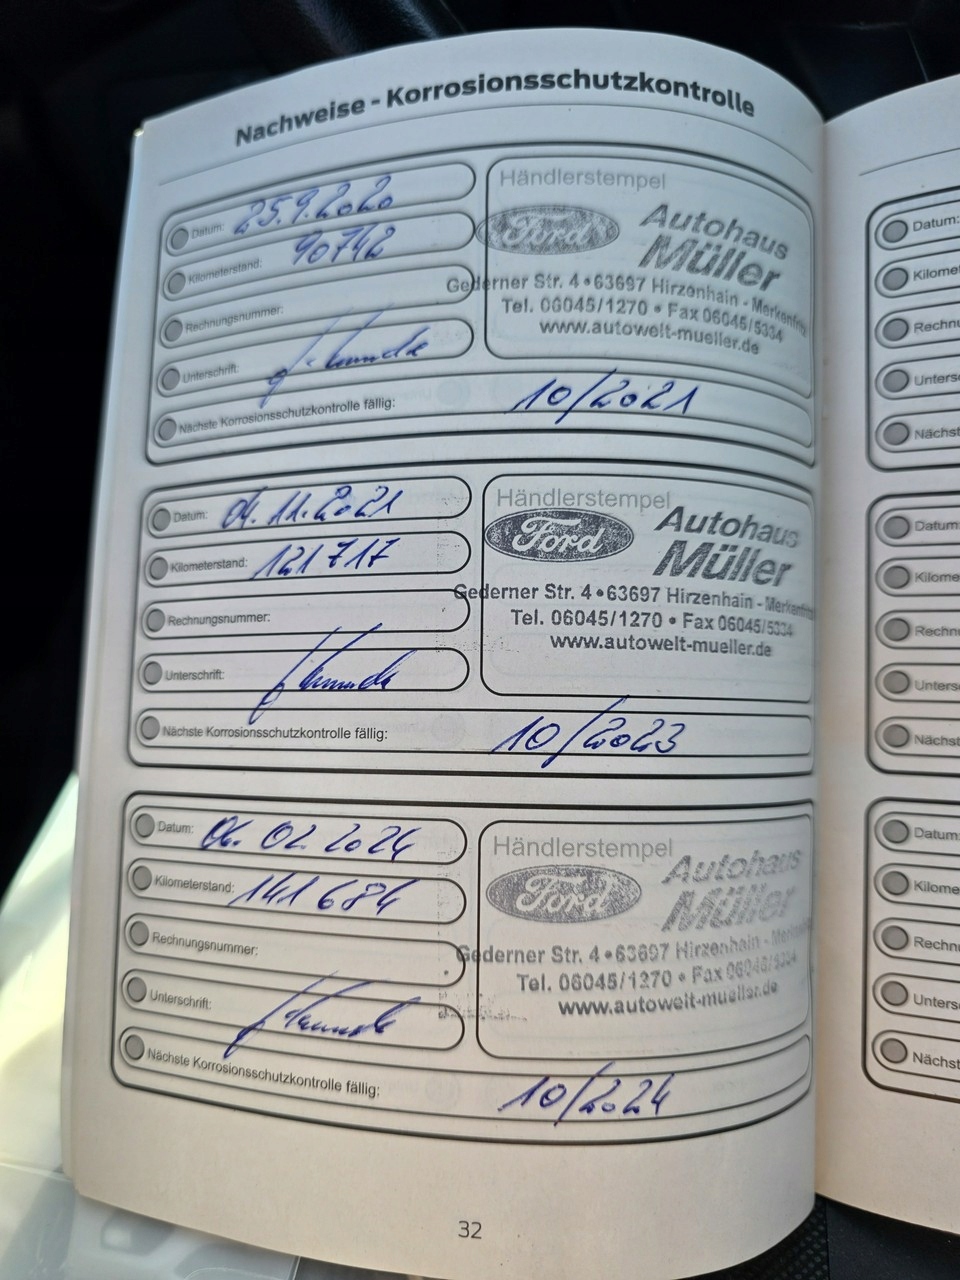 Nachweise - Korrosionsschutzkontrolle
Datum: 25.9.2020
Kilometerstand: 90742
Rechnungsnummer:
Unterschrift:
Händlerstempel
Ford Autohaus
Müller
Gederner Str. 4 • 63697 Hirzenhain - Merkenfritz
Tel. 06045/1270 • Fax 06045/5334
www.autowelt-mueller.de
Nächste Korrosionsschutzkontrolle fällig: 10/2021
Datum: 04.11.2021
Kilometerstand: 121717
Rechnungsnummer:
Unterschrift:
Händlerstempel
Ford Autohaus
Müller
Gederner Str. 4 • 63697 Hirzenhain - Merkenfritz
Tel. 06045/1270 • Fax 06045/5334
www.autowelt-mueller.de
Nächste Korrosionsschutzkontrolle fällig: 10/2023
Datum: 06.02.2024
Kilometerstand: 141684
Rechnungsnummer:
Unterschrift:
Händlerstempel
Ford Autohaus
Müller
Gederner Str. 4 • 63697 Hirzenhain -
Tel. 06045/1270 • Fax 06045/5334
www.autowelt-mueller.de
Nächste Korrosionsschutzkontrolle fällig: 10/2024
32
Datum:
Kilome
Rechnu
Unters
Nächst
Datum
Kilome
Rechn
Unters
Nächst
Datum:
Kilome
Rechn
Unters
Nächst